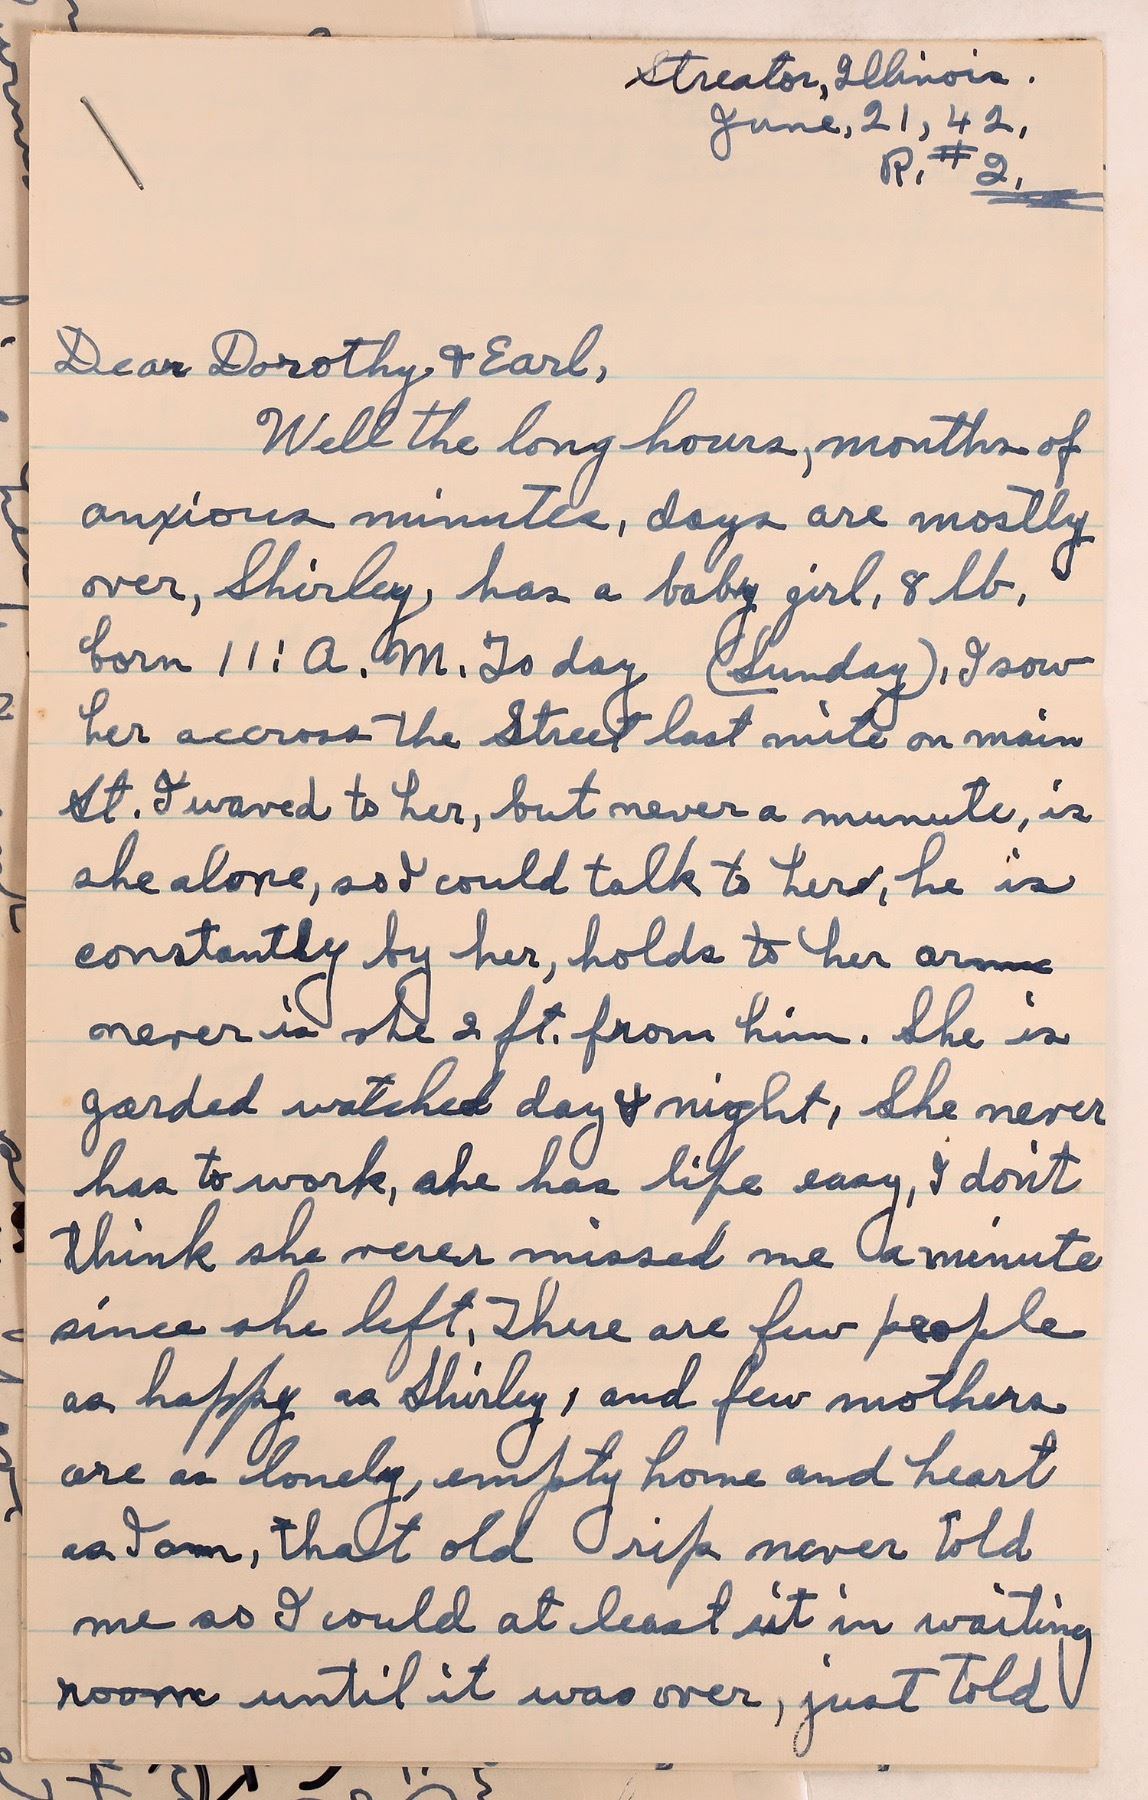 Streator, Illinois.
June, 21, 42,
R. #2.
Dear Dorothy & Earl,
Well the long hours, months of
anxious minutes, days are mostly
over, Shirley, has a baby girl, 8 lb,
born 11: A. M. To day (Sunday), I saw
her accross the Street last nite on main
St. I waved to her, but never a munute, is
she alone, so I could talk to her, he is
constantly by her, holds to her arm
never is she 2 ft. from him. She is
garded watched day & night, She never
has to work, she has life easy, I don't
think she never missed me a minute
since she left, There are few people
as happy as Shirley, and few mothers
are as lonely, empty home and heart
as I am, that old rip never told
me so I could at least sit in waiting
room until it was over, just told